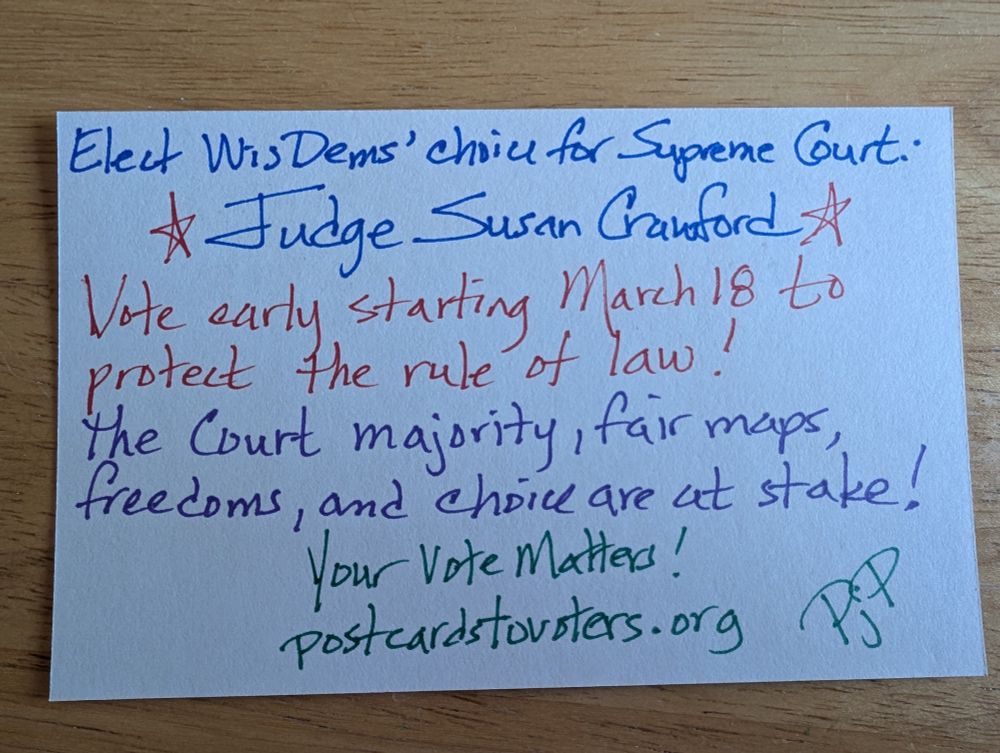 Elect WisDems' choice for Supreme Court:
☆ Judge Susan Crawford ☆
Vote early starting March 18 to
protect the rule of law!
The Court majority, fair maps,
freedoms, and choice are at stake!
Your Vote Matters!
postcardstovoters.org PjP